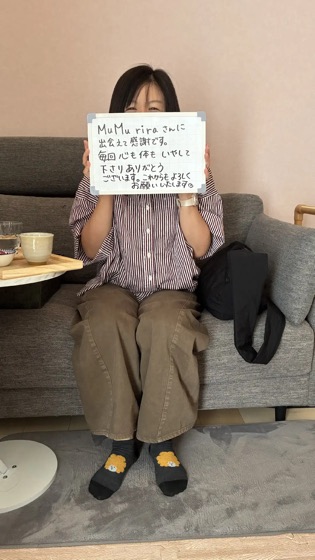 MuMu rira さんに
出会えて感謝です。
毎回 心も体も いやして
下さりありがとう
ございます。これからもよろしく
お願いいたします